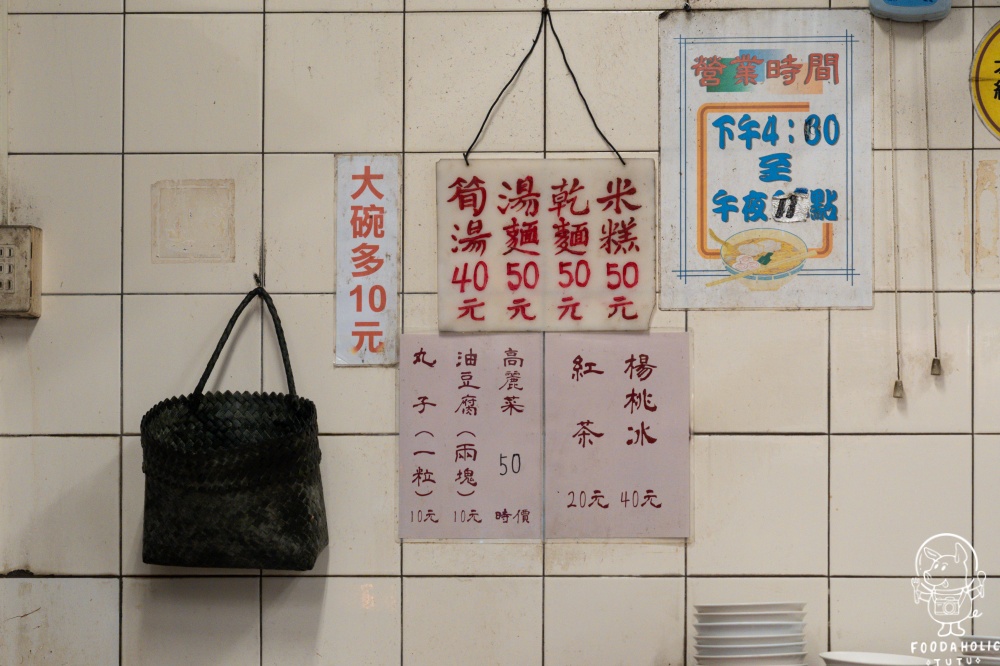 大碗多10元
米糕50元
乾麵50元
湯麵50元
筍湯40元
營業時間
下午4:00
至
午夜11點
楊桃冰 40元
紅茶 20元
高麗菜 50 時價
油豆腐(兩塊) 10元
丸子(一粒) 10元
FOODAHOLIC
TUTU